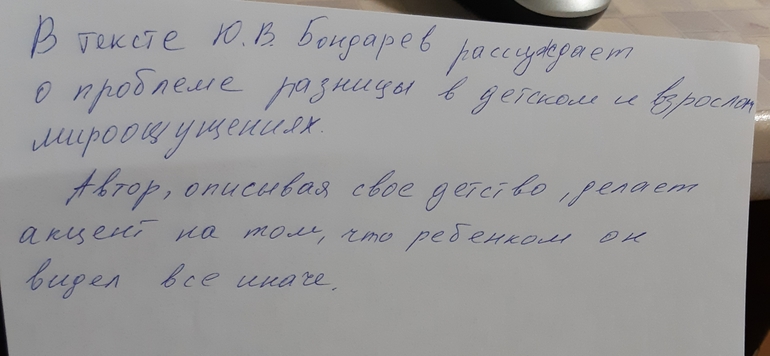 В тексте Ю.В. Бондарев рассуждает
о проблеме разницы в детском и взрослом
мироощущениях.
Автор, описывая свое детство, делает
акцент на том, что ребенком он
видел все иначе.